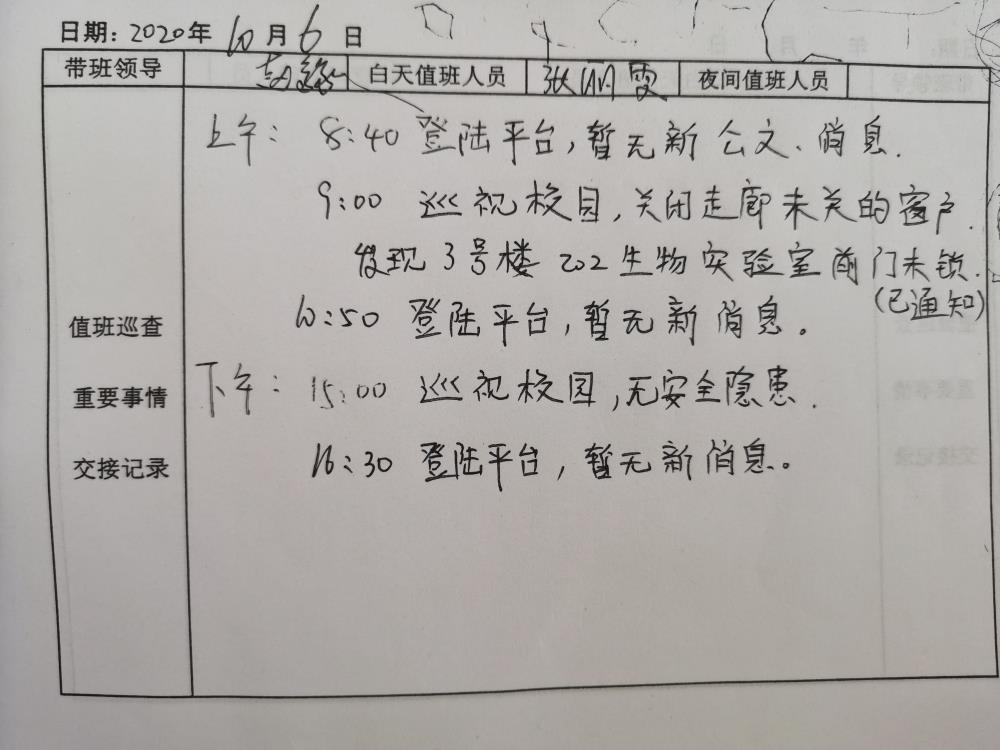 日期：2020年 10 月 6 日
带班领导 白天值班人员 张丽雯 夜间值班人员
上午： 8:40 登陆平台，暂无新公文、消息.
9:00 巡视校园，关闭走廊未关的窗户.
发现3号楼 202生物实验室前门未锁.
(已通知)
10:50 登陆平台，暂无新消息。
值班巡查
下午： 15:00 巡视校园，无安全隐患.
重要事情
16:30 登陆平台，暂无新消息。
交接记录